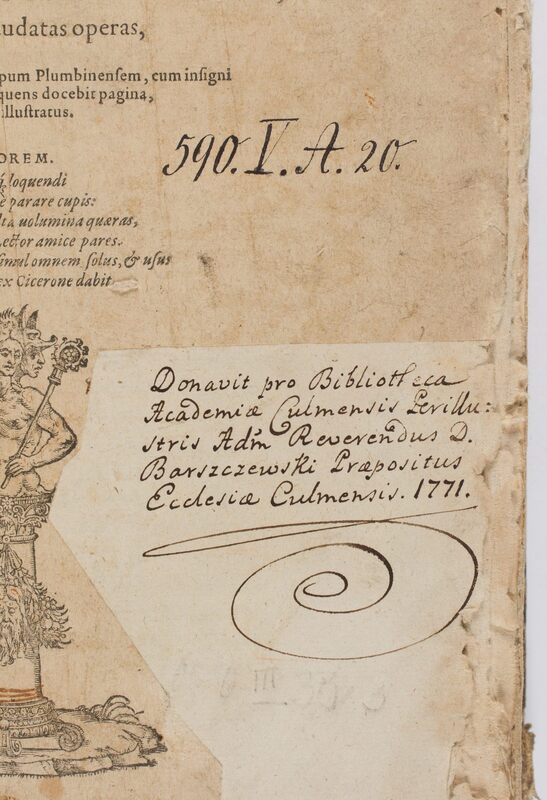 udatas operas,
pum Plumbinensem, cum insigni
quens docebit pagina,
illustratus.
OREM.
loquendi
parare cupis:
uolumina quæras,
ector amice pares.
simul omnem solus, & usus
ex Cicerone dabit
590. V. A. 20.
Donavit pro Bibliotheca
Academiæ Culmensis Perillu:
stris Adm Reverendus D.
Barszczewski Præpositus
Ecclesiæ Culmensis. 1771.